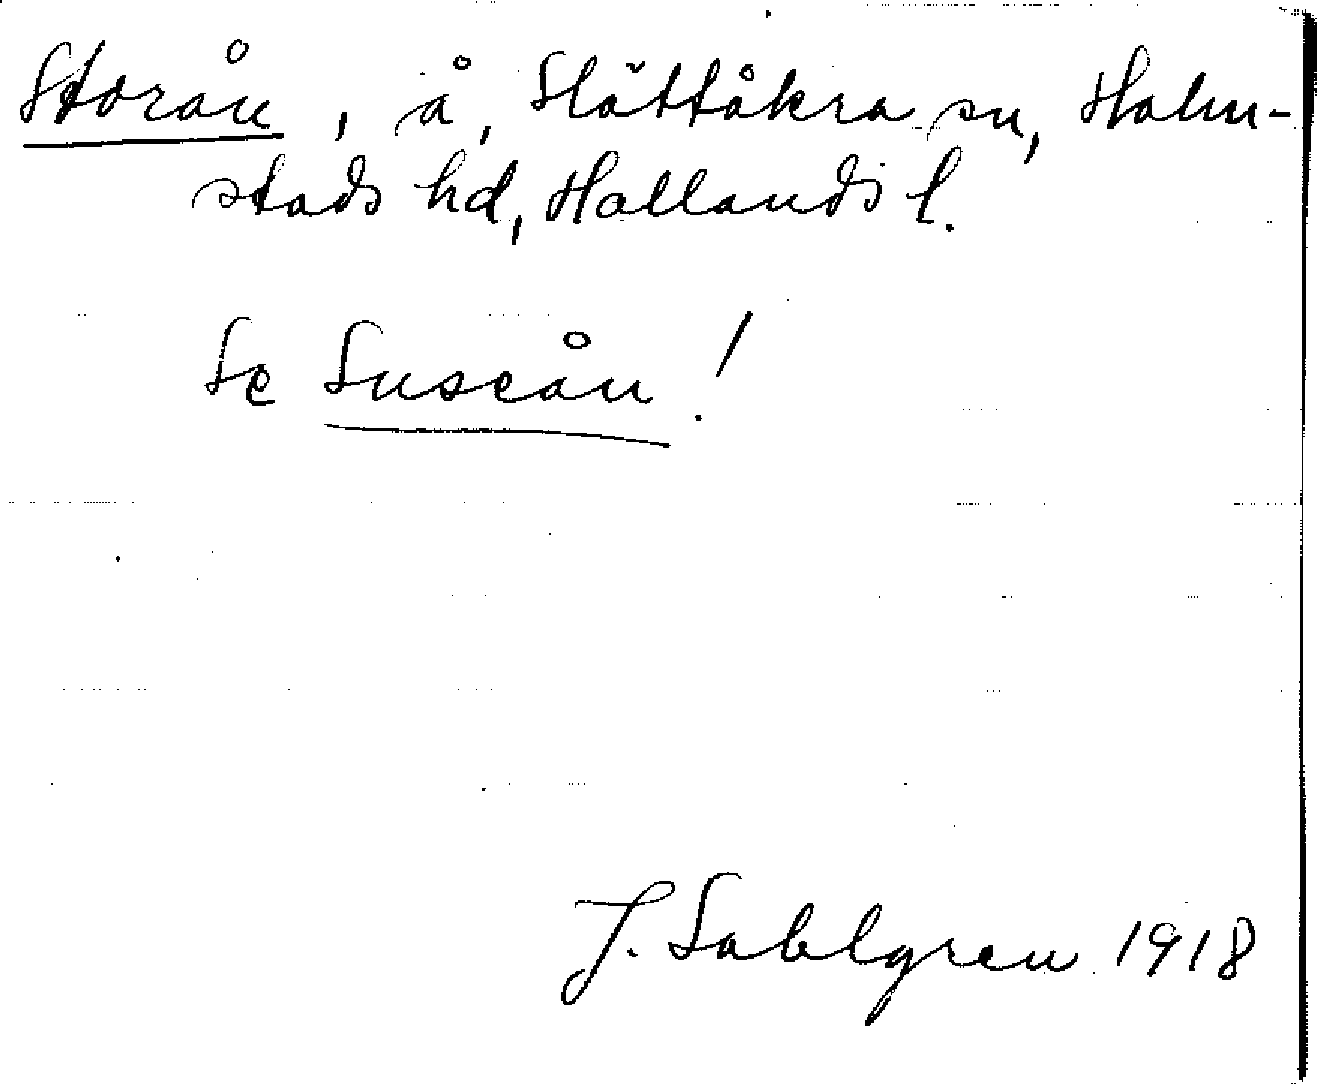 Storån, å, Slättåkra sn, Halm-
stads hd, Hallands l.
Se Suseån!
J. Sahlgren 1918